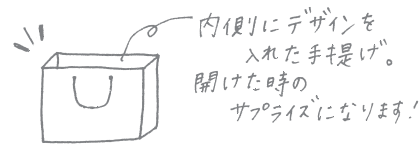 内側にデザインを
入れた手提げ。
開けた時の
サプライズになります!